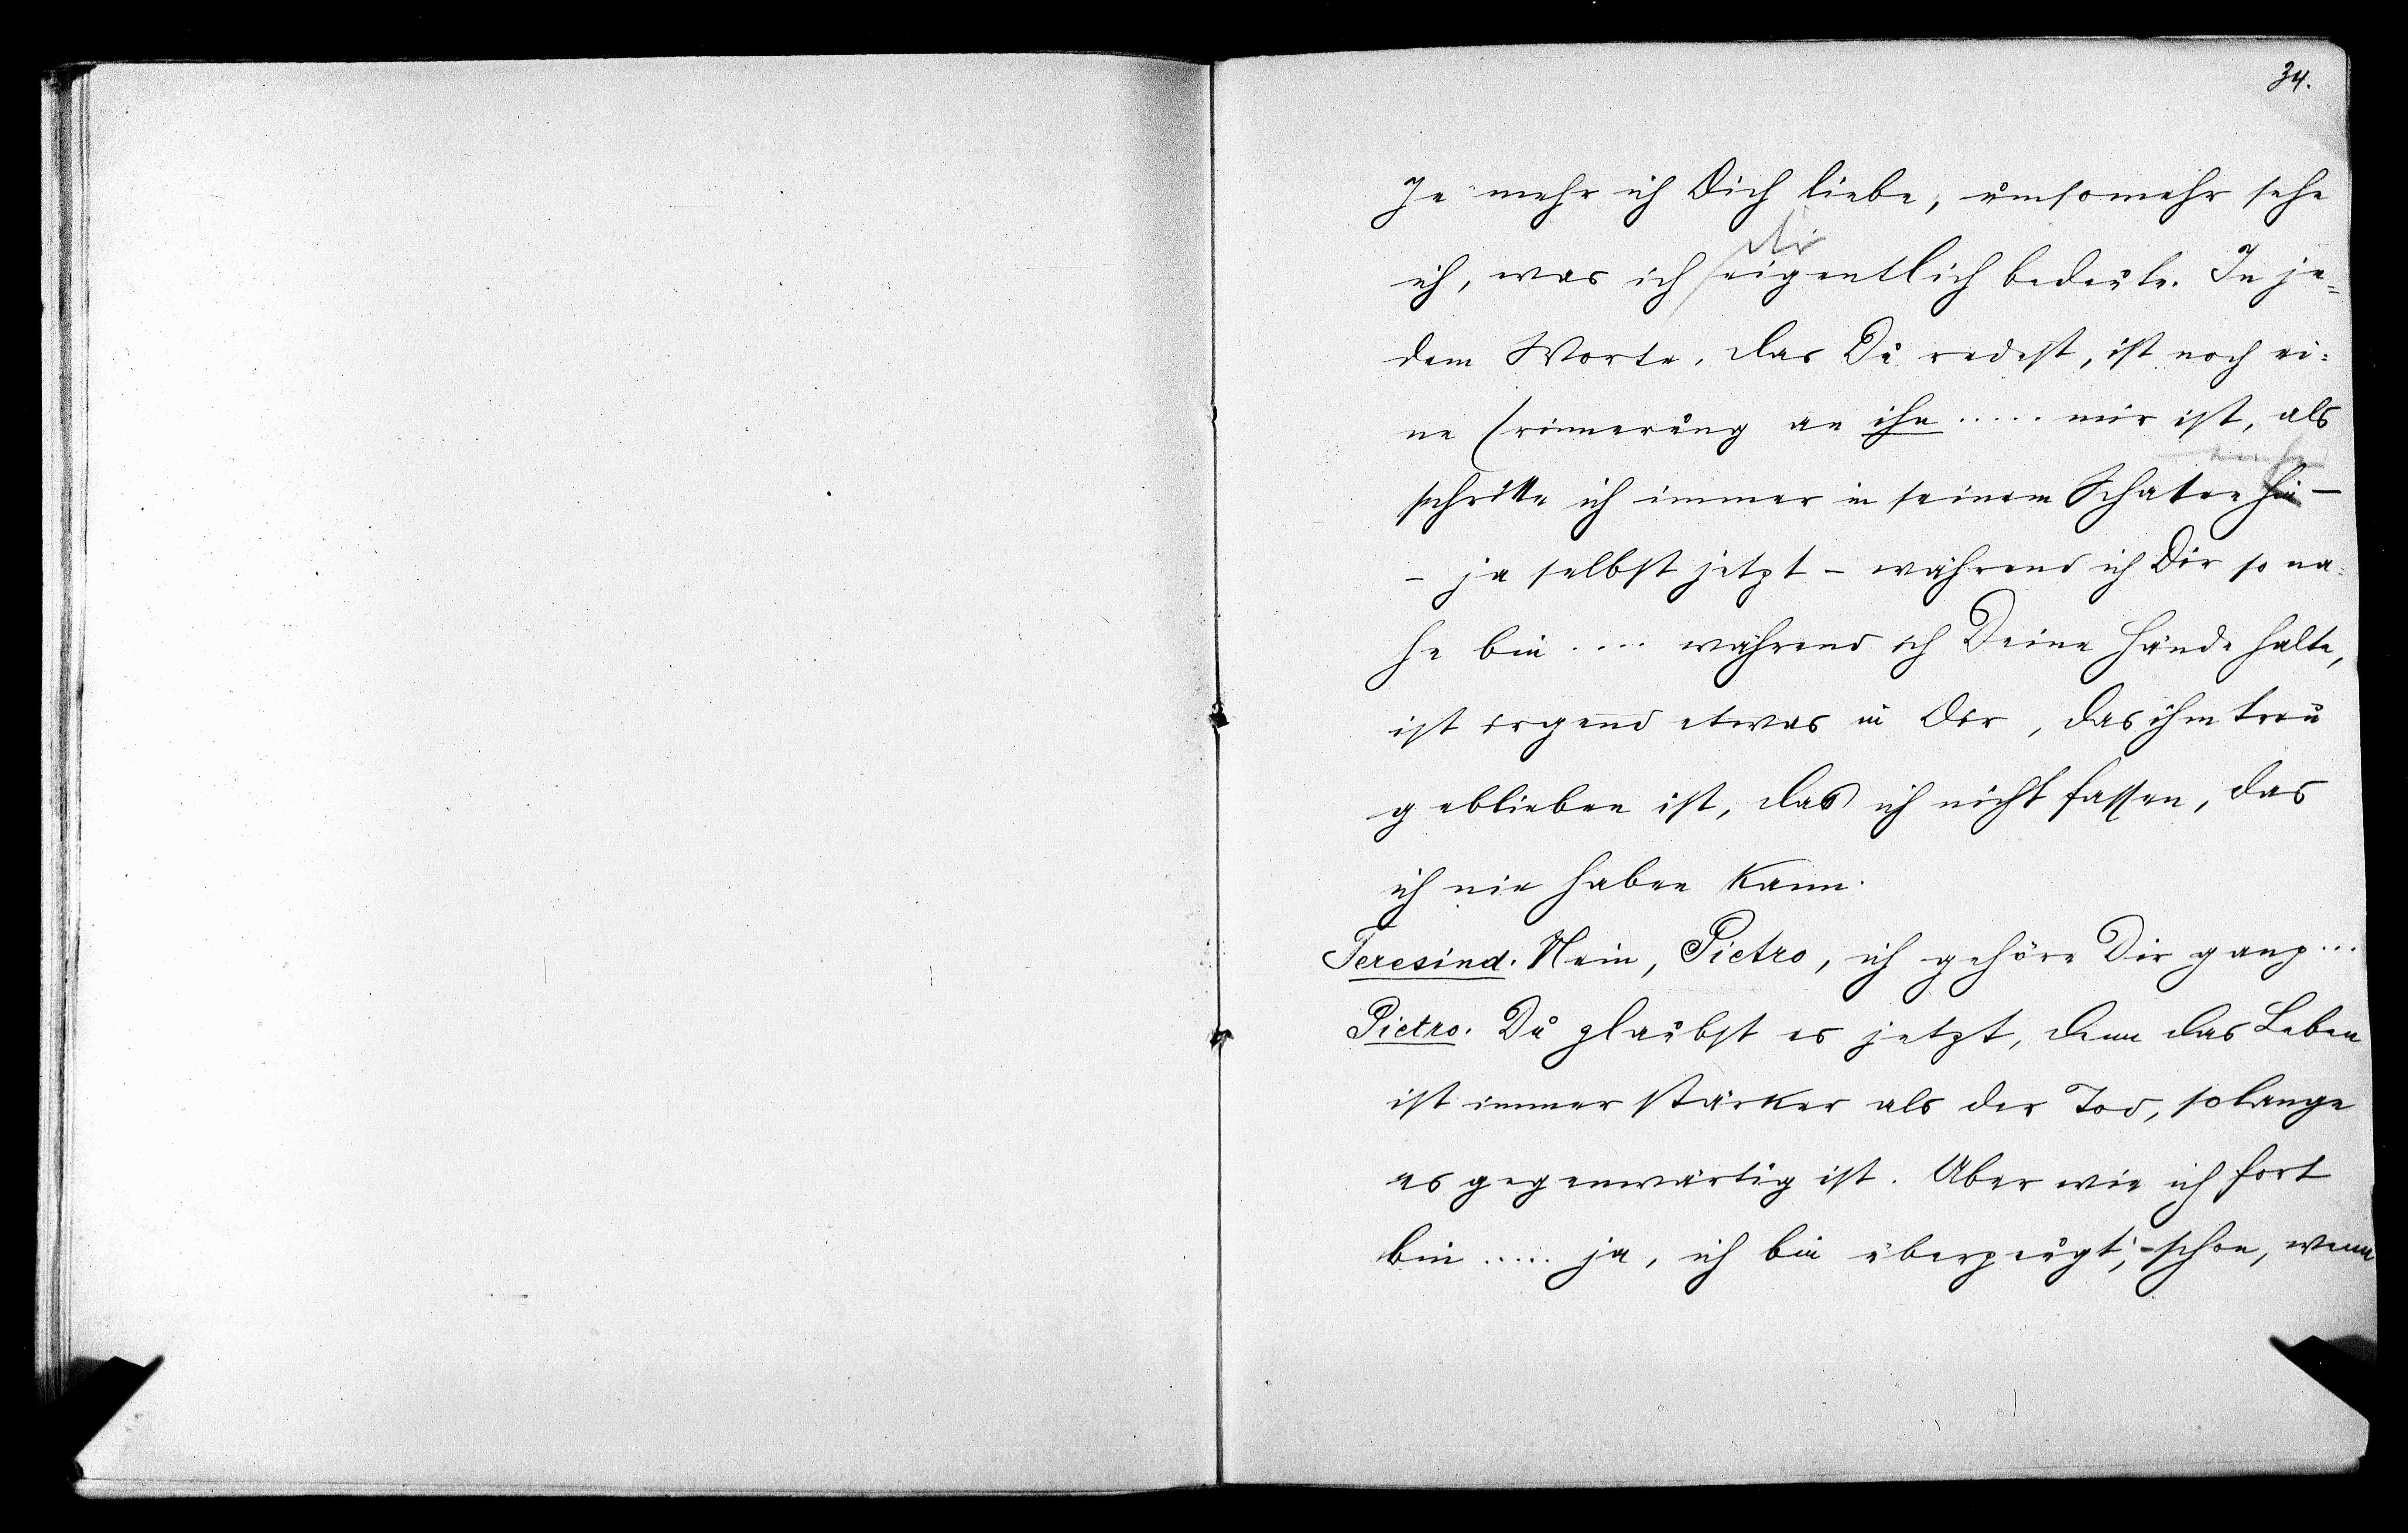 34.
Je mehr ich Dich liebe, umsomehr sehe
dir
ich, was ich eigentlich bedeute. In je=
dem Worte, das Du redest, ist noch ei=
ne Erinnerung an ihn ..... mir ist, als
schritte ich immer in seinem Schaten hin –
– ja selbst jetzt – während ich Dir so na=
he bin .... während ich Deine Hände halte,
ist irgend etwas in Dir, das ihm treu
geblieben ist, das ich nicht fassen, das
ich nie haben kann.
Teresina. Nein, Pietro, ich gehöre Dir ganz ...
Pietro. Du glaubst es jetzt, denn das Leben
ist immer stärker als der Tod, solange
es gegenwärtig ist. Aber wie ich fort
bin ..... ja, ich bin überzeugt, – schon, wenn